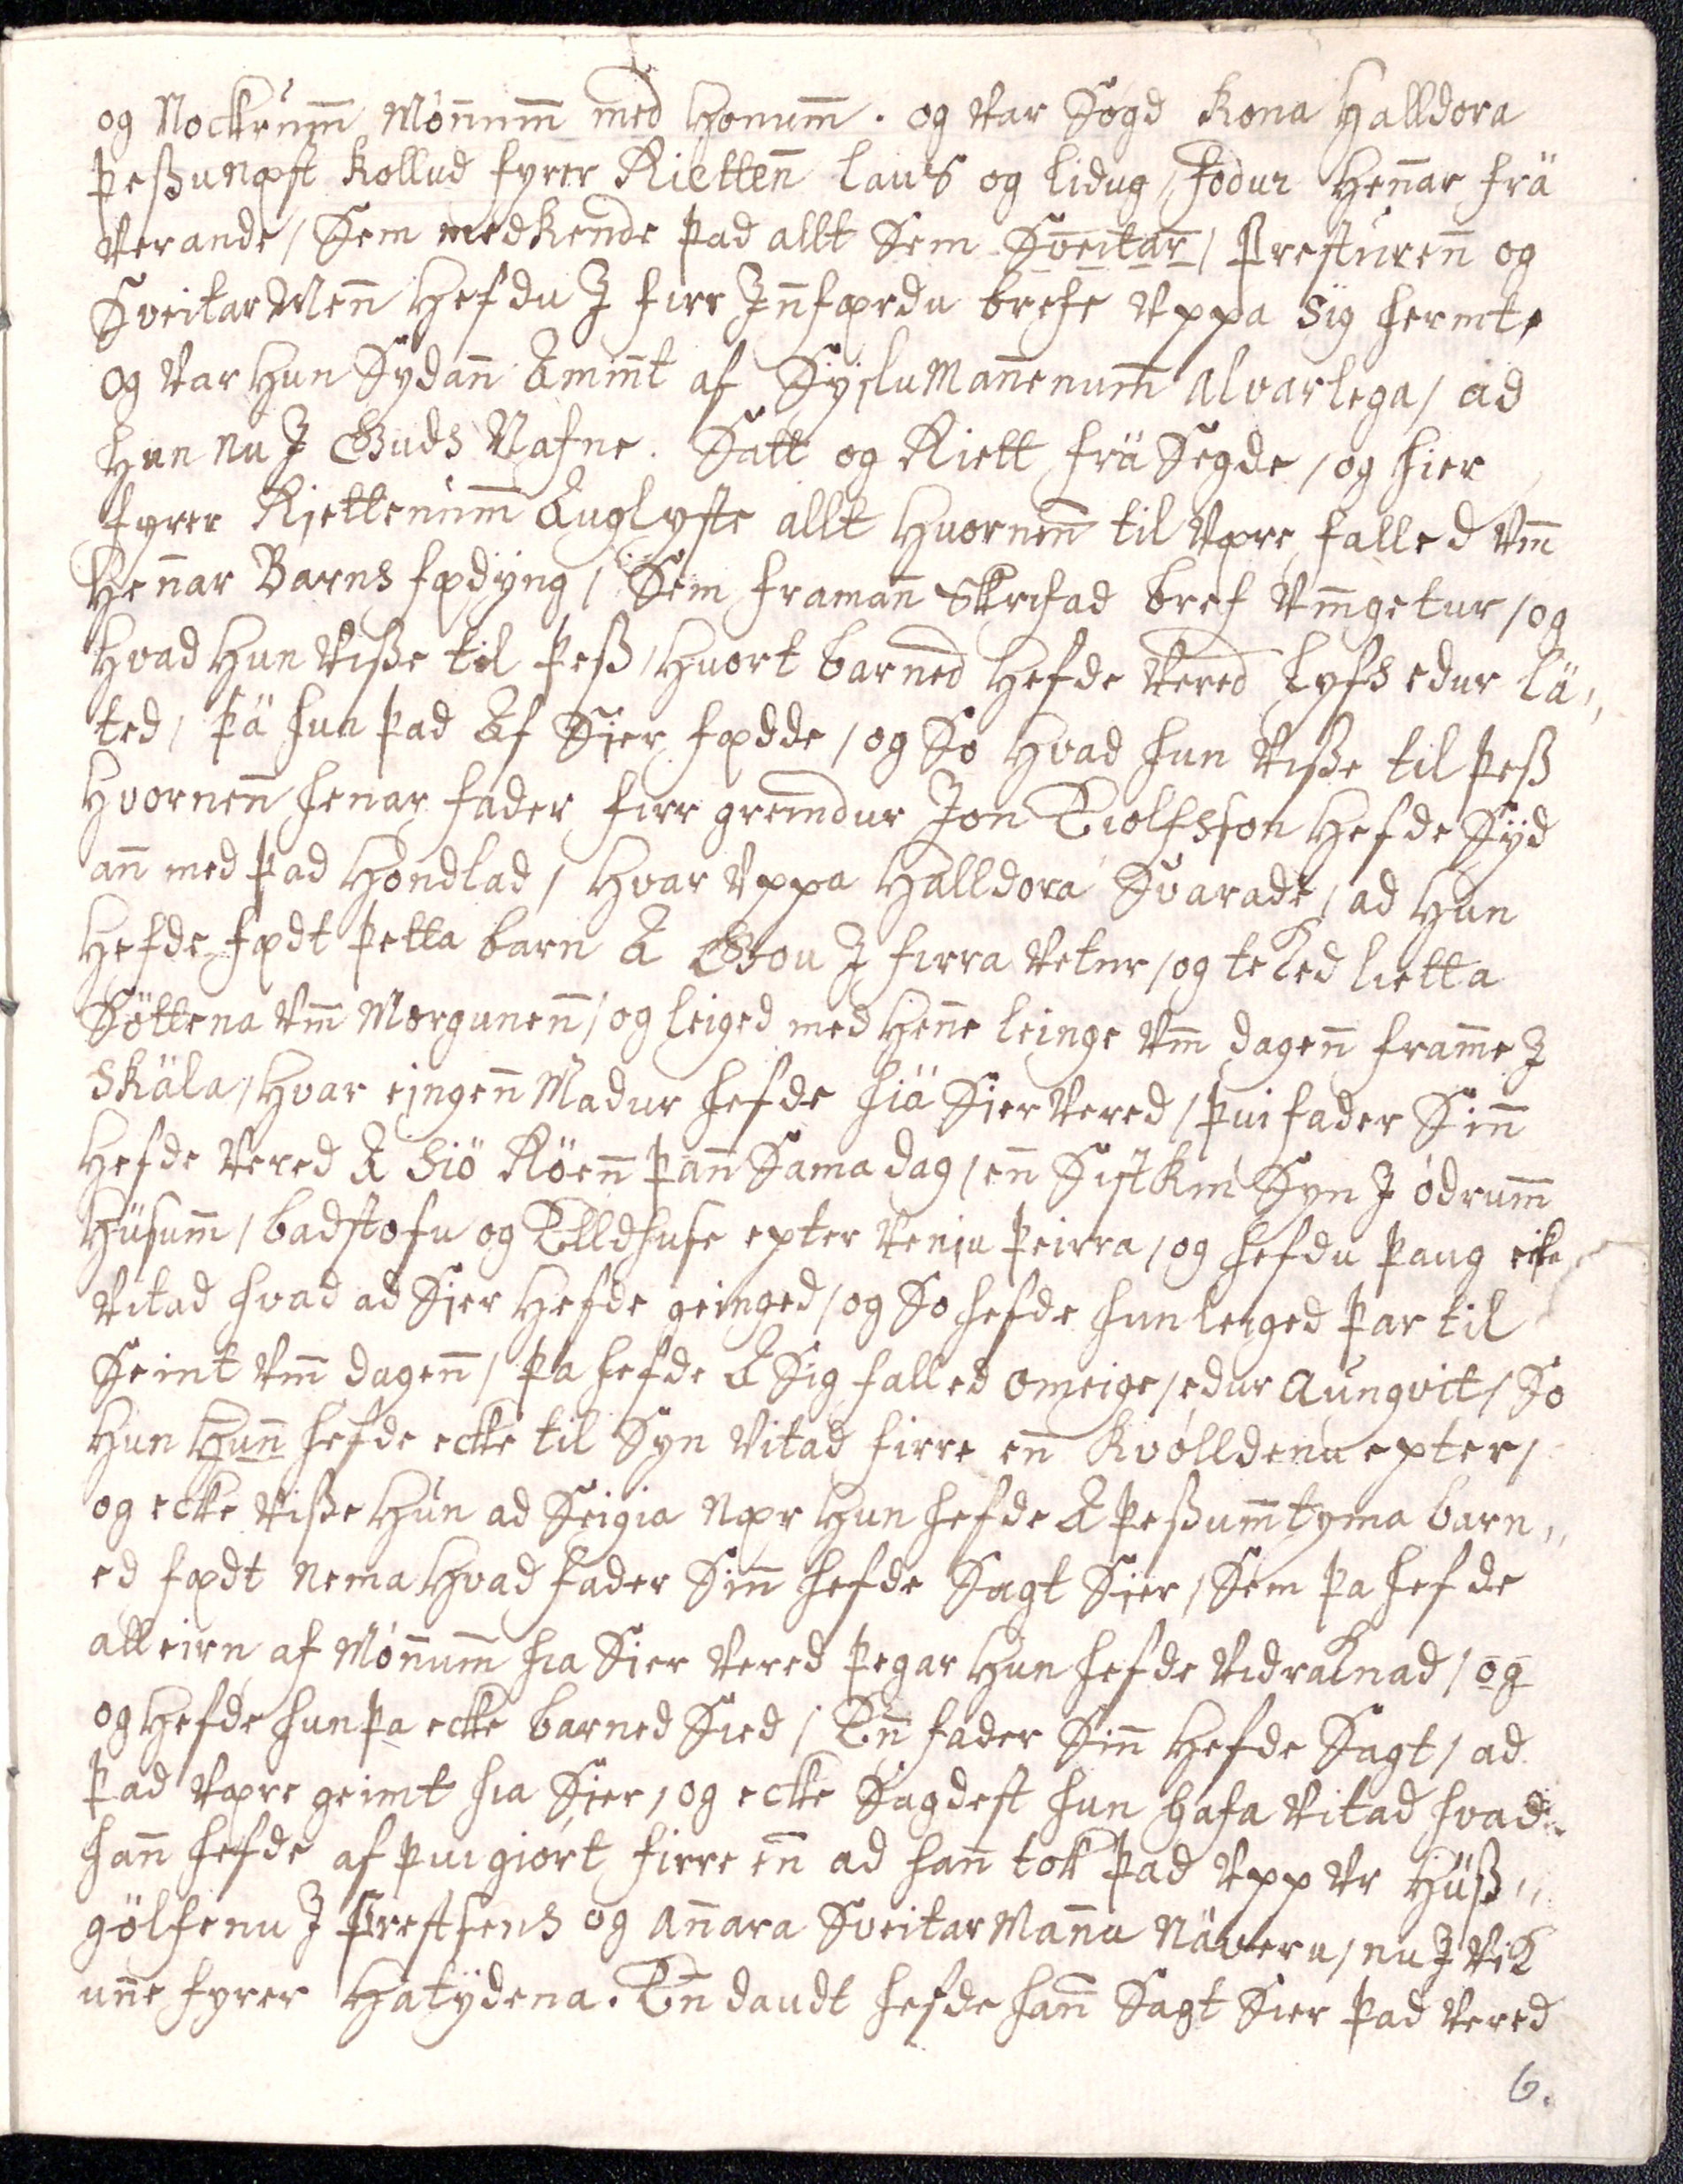 og Nockrum̄ Mön̄um̄ med Honum̄. og var Sögd kona Halldora
þeßu næst kollud fyrer Rietten̄ laus og lidug, Fodur Hen̄ar frä
verande / Sem medkende þad allt Sem Sveitar / Presturen̄ og
Sveitar Men̄ Hefdu J firr Jn̄færdu brefe Uppa Sig hermt,
og var Hun Sydan̄ Amin̄t af SysluMan̄enum̄ Alvarlega / ad
Hun nu J Guds Nafne. Satt og Riett frä Segde / og hier
fyrer Riettenum̄ Auglyste allt Huornen̄ til være falled Um̄
Hen̄ar Barns fædyng / Sem framan̄ Skrifad bref Um̄getur / og
Hvad Hun viße til þeß / Huort barned Hefde vered Lyfs edur lä,,
ted / þä hun þad Af Sier fædde / og So Hvad hun viße til þeß
Hvornen̄ henar fader firr greindur Jon Eiolfsson Hefde Syd
an̄ med þad Höndlad / Hvar Uppa Halldora Svarade / ad Hun
Hefde fædt þetta barn A Gou J firra vetur / og teked lietta
Söttena Um̄ Morgunen̄ / og leiged med Hen̄e leinge Um̄ dagen̄ fram̄e J
Skäla / Hvar eingen̄ Madur hefde hiä Sier vered / þui fader Sin̄
Hefde vered A Siö Röen̄ þan̄ Sama dag / en̄ Sistken Syn J ödrum̄
Hüsum̄ / badstofu og Elldhuse epter venju þeirra / og hefdu þaug ecke
vitad hvad ad Sier Hefde geinged / og So hefde hun leiged þar til
Seint Um̄ dagen̄ / þa hefde A Sig falled omeige / edur Aungvit / So
Hun Hun̄ hefde ecke til Syn vitad firre en̄ kvölldenu epter /
og ecke viße Hun ad Seigia nær Hun hefde A þeßum̄ tyma barn,,
ed fædt nema Hvad fader Sin̄ hefde Sagt Sier / Sem þa hefde
alleirn af Mön̄um̄ hia Sier vered þegar Hun hefde vidraknad / og
og Hefde hun þa ecke barned Sied / En̄ fader Sin̄ Hefde Sagt / ad
þad være geimt hia Sier / og ecke Sagdest hun hafa vitad hvad
han̄ hefde af þui giört firre en̄ ad han̄ tok þad Upp Ur Hüß,,
gölfenu J Prestsens og an̄ara Sveitar Man̄a Näveru / nu J vik
un̄e fyrer Hatydena. En̄ daudt hefde han̄ Sagt Sier þad vered
6.